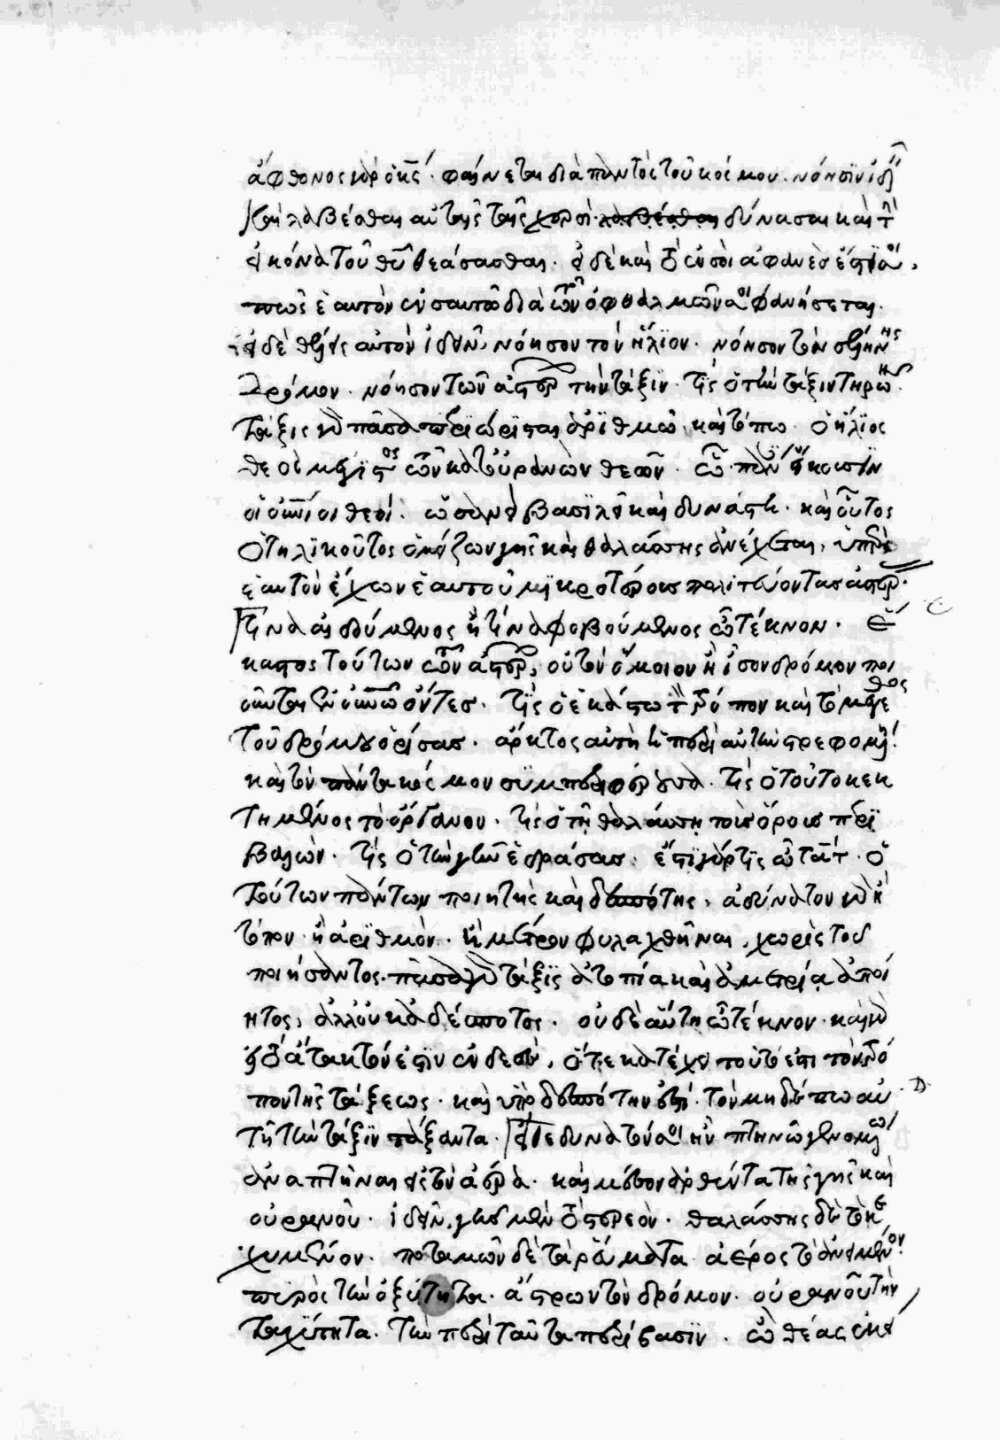 ἄφθονος γὰρ ὁ κς΄. φαίνεται διὰ παντὸς τοῦ κόσμου. νόησιν ἰδεῖν
καὶ λαβέσθαι αὐταῖς ταῖς χερσὶ δύνασαι καὶ τὴν
εἰκόνα τοῦ θυ θεάσασθαι. εἰ δὲ καὶ τὸ ἐν σοὶ ἀφανές ἐστί σοι,
πῶς ἑαυτὸν ἐν σαυτῷ διὰ τῶν ὀφθαλμῶν σοι φανήσεται.
εἰ δὲ θέλεις αὐτὸν ἰδεῖν, νόησον τὸν ἥλιον. νόησον τὸν σελήνης
δρόμον. νόησον τῶν ἀστέρων τὴν τάξιν. τίς ὁ τὴν τάξιν τηρῶν.
τάξις γὰρ πᾶσα περιώρισται ἀριθμῷ καὶ τόπῳ. ὁ ἥλιος
θεὸς μέγιστος τῶν κατ' οὐρανὸν θεῶν. ᾧ πάντες εἴκουσιν
οἱ οὐράνιοι θεοί. ὡσανεὶ βασιλεῖ καὶ δυνάστῃ. καὶ οὗτος
ὁ τηλικοῦτος ὁ μείζων γῆς καὶ θαλάσσης ἀνέχεται, ὑπὲρ
ἑαυτὸν ἔχων ἑαυτοῦ μικροτέρους πολιτεύοντας ἀστέρας.
τίνα αἰδούμενος ἢ τίνα φοβούμενος ὦ τέκνον. ἕ
καστος τούτων τῶν ἀστέρων, οὐ τὸν ὅμοιον ἢ ἴσον δρόμον ποι
οῦνται ἐν οὐρανῷ ὄντες. τίς ὁ ἑκάστῳ τὸν τρόπον καὶ τὸ μέγεθος
τοῦ δρόμου ὁρίσας. ἄρκτος αὕτη ἡ περὶ αὑτὴν στρεφομένη.
καὶ τὸν πάντα κόσμον συμπεριφέρουσα. τίς ὁ τοῦτο κεκ
τημένος τὸ ὄργανον. τίς ὁ τῇ θαλάσσῃ τοὺς ὅρους περι
βαλών. τίς ὁ τὴν γῆν ἑδράσας. ἔστι γάρ τις ὦ τὰτ. ὁ
τούτων πάντων ποιητὴς καὶ δεσπότης. ἀδύνατον γὰρ ἢ
τόπον. ἢ ἀριθμὸν. ἢ μέτρον φυλαχθῆναι, χωρὶς τοῦ
ποιήσαντος. πᾶσα γὰρ τάξις ἀτοπία καὶ ἀμετρία ἀποί
ητος, ἀλλ' οὐκ ἀδέσποτος. οὐδὲ αὕτη ὦ τέκνον. καὶ γὰρ
εἰ τὸ ἄτακτόν ἐστιν ἐνδεές, ὅτε κατέχει τοῦτό ἐστι τὸν τρό
πον τῆς τάξεως. καὶ ὑπὸ δεσπότην ἐστί. τὸν μηδέπω αὐ
τῇ τὴν τάξιν τάξαντα. εἴθε δυνατόν σοι ἦν πτηνῷ γενομένῳ
ἀναπτῆναι εἰς τὸν ἀέρα. καὶ μέσον ἀρθέντα τῆς γῆς καὶ
οὐρανοῦ. ἰδεῖν, γῆς μὲν τὸ στερεόν. θαλάσσης δὲ τὸ κε
χυμένον. ποταμῶν δὲ τὰ ῥεύματα. ἀέρος τὸ ἀνειμένον.
πυρὸς τὴν ὀξύτητα. ἄστρων τὸν δρόμον. οὐρανοῦ τὴν
ταχύτητα. τὴν περὶ ταῦτα περίβασιν. ὢ θέας ἐκεί